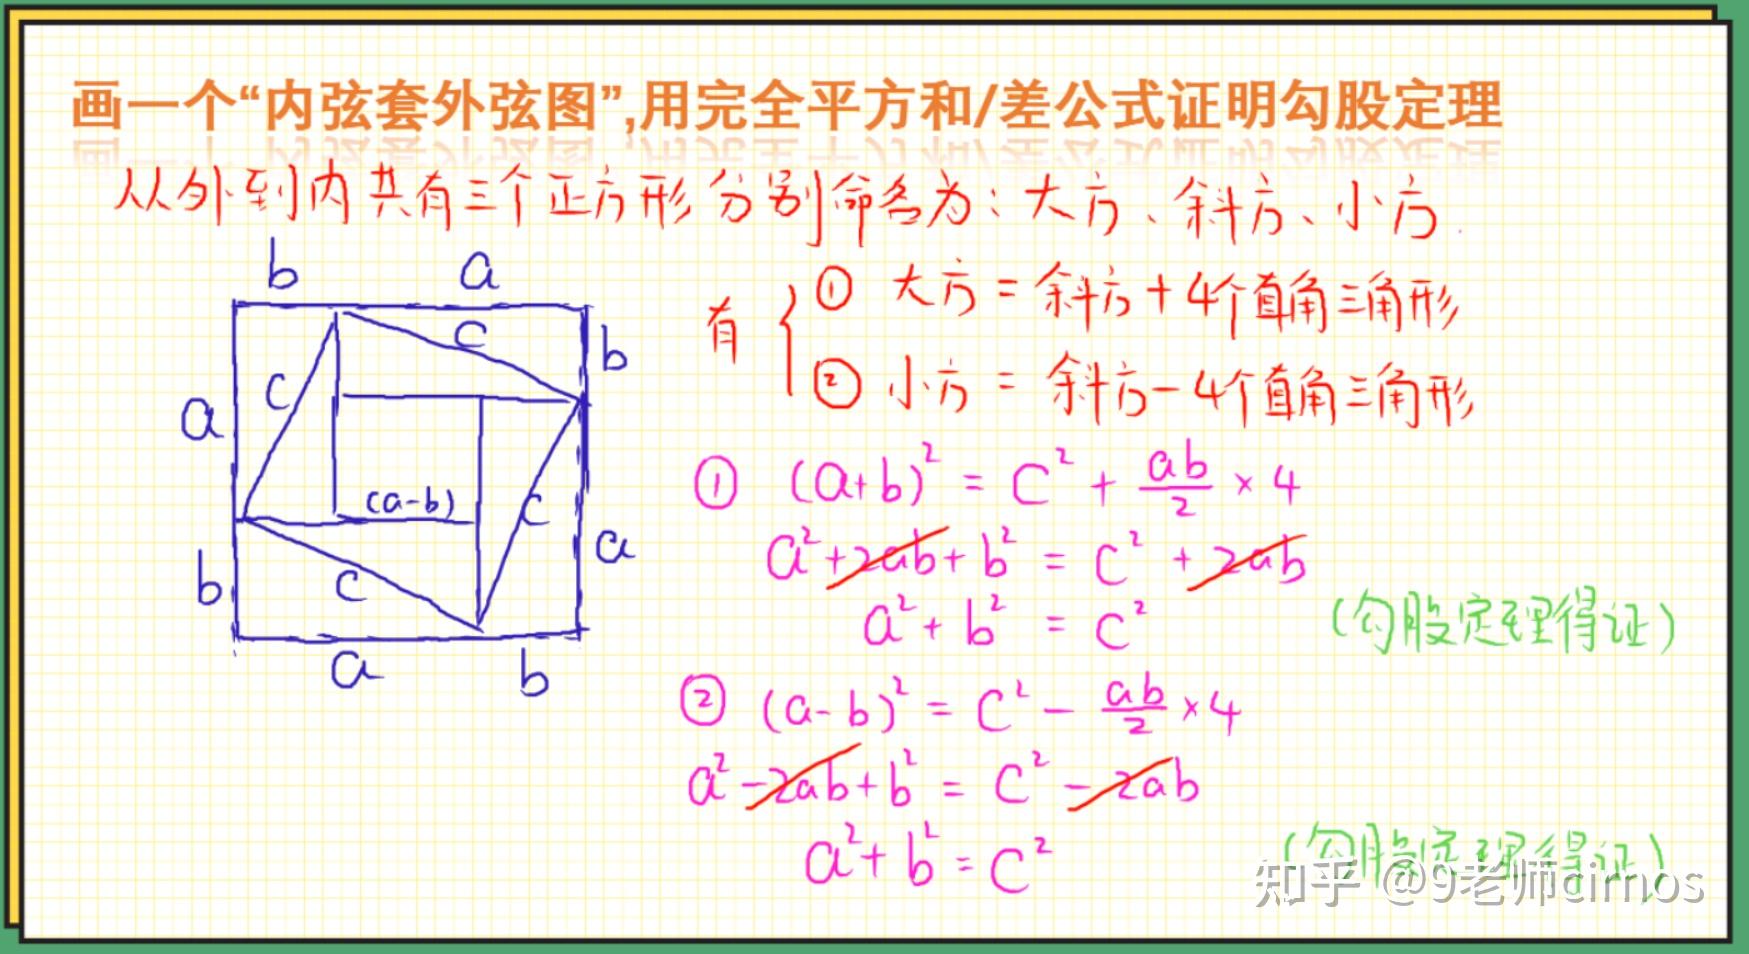 画一个“内弦套外弦图”,用完全平方和/差公式证明勾股定理
从外到内共有三个正方形分别命名为：大方、斜方、小方.
b a
c
b
c
a
(a-b)
c
a
b
c
a
b
有 { ① 大方 = 斜方 + 4个直角三角形
② 小方 = 斜方 - 4个直角三角形
① (a+b)² = c² + ab/2 × 4
a² + 2ab + b² = c² + 2ab
a² + b² = c² (勾股定理得证)
② (a-b)² = c² - ab/2 × 4
a² - 2ab + b² = c² - 2ab
a² + b² = c² (勾股定理得证)
知乎 @9老师dimos